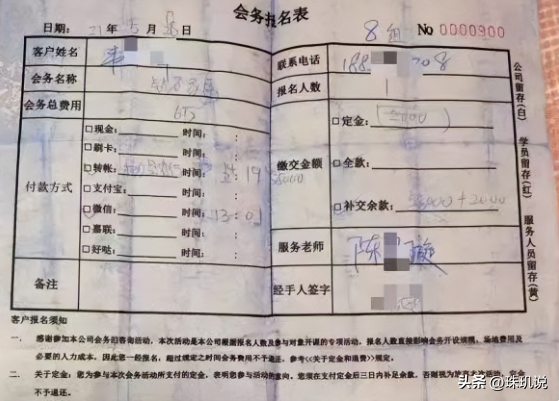 会务报名表
日期: 21年5月 日 8组 No 0000900
客户姓名 联系电话 188 208
会务名称 报名人数 1
会务总费用
付款方式
□现金: 时间: :
□刷卡: 时间: :
□转帐: 时间: : 19
□支付宝: 时间: :
□微信: 时间: 13:01
□嘉联: 时间: :
□好哒: 时间: :
缴交金额
□定金:
□全款:
□补交余款: +2000
服务老师 陈
备注 经手人签字
公司留存(白) 学员留存(红) 服务人员留存(黄)
客户报名须知
一. 感谢参加本公司会务部咨询活动,本次活动是本公司根据报名人数及参与对象开课的专项活动,报名人数直接影响会务开设规模,场地费用及
必要的人力成本。因此您一经报名,超过规定之时间会务费用不予退还。参考《关于定金和退费》规定。
二. 关于定金:您为参与本次会务活动所支付的定金,表明您参与活动的意向。您须在支付定金后三日内补足余款,否则视为放弃本次活动,定金
不予退还。
头条 @珠玑说